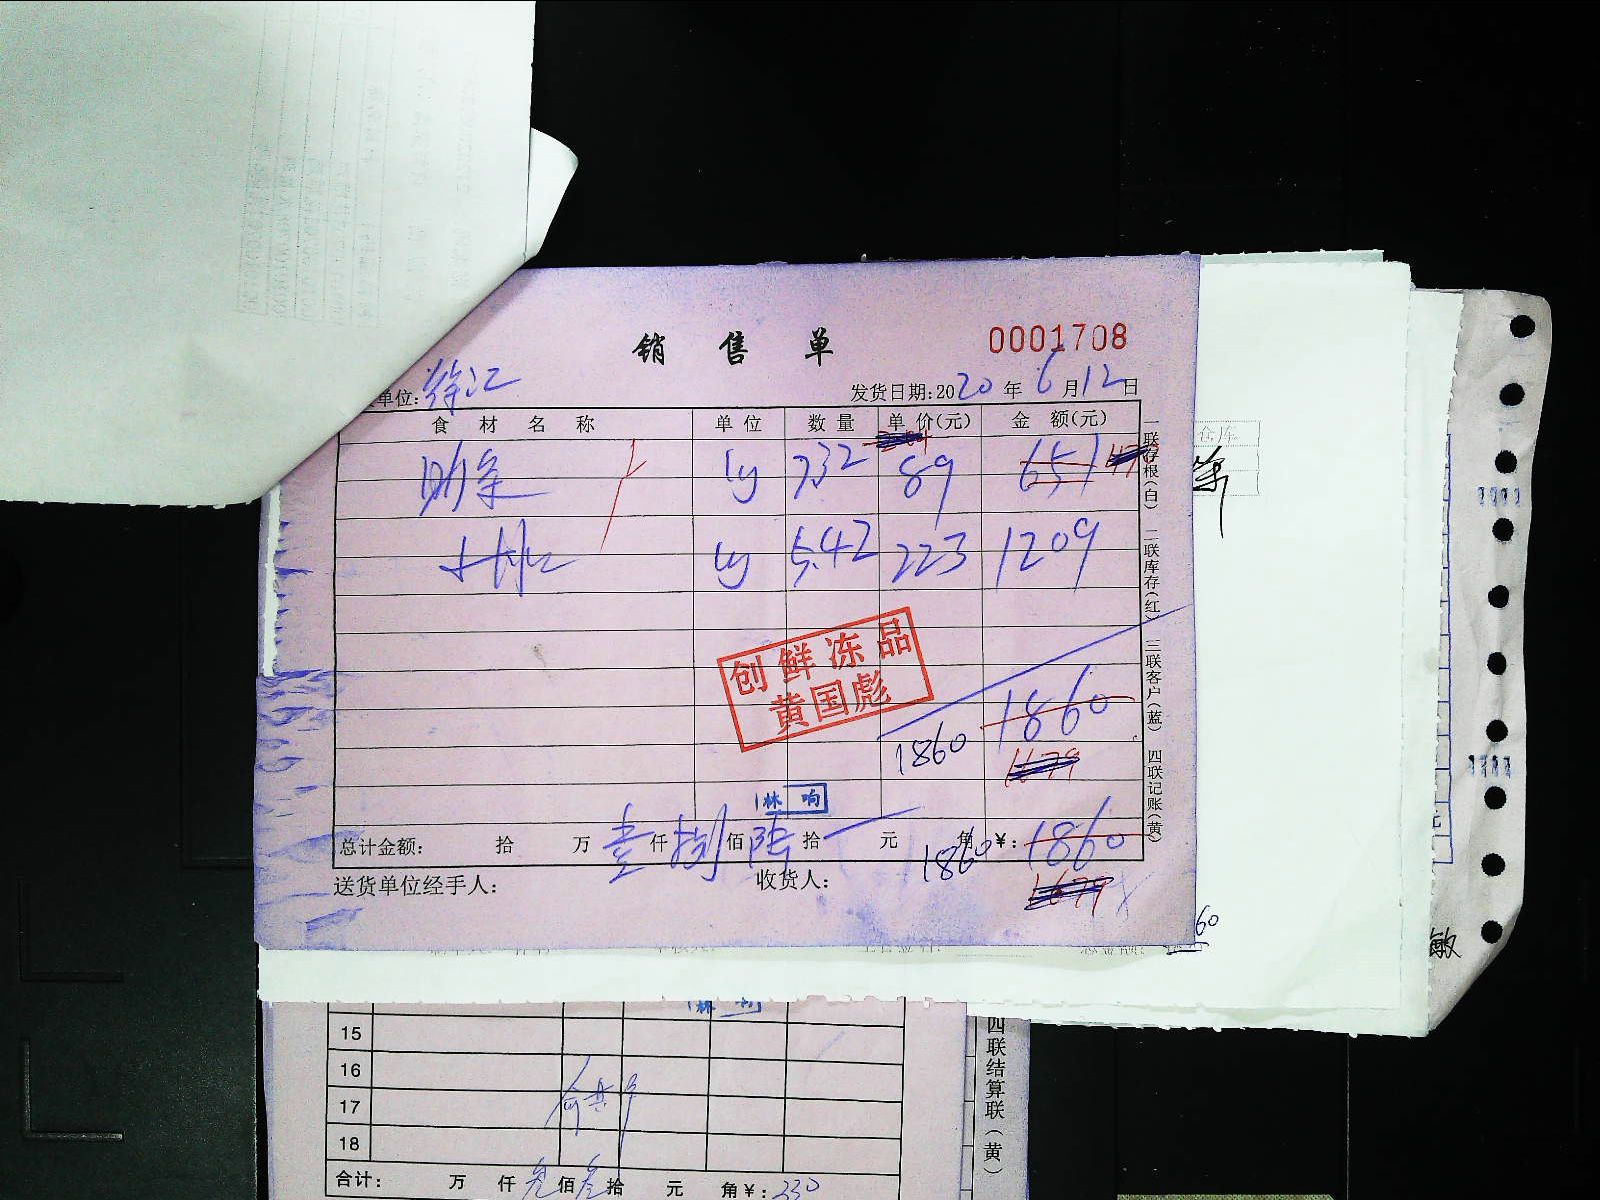 销 售 单
0001708
单位: 徐汇
发货日期: 2020 年 6 月 12 日
食 材 名 称 单 位 数 量 单 价(元) 金 额(元)
肋条 kg 7.32 89 651
kg 5.42 223 1209
创鲜冻品
黄国彪
1860
1860
1679
林 响
总计金额: 拾 万 壹 仟 捌 佰 陆 拾 元 角 ¥: 1860
1860
1679
送货单位经手人: 收货人:
一联存根(白) 二联库存(红) 三联客户(蓝) 四联记账(黄)
仓库
60
敏
元
15
16
17
18
合计: 万 仟 叁 佰 叁 拾 元 角 ¥: 330
四联结算联(黄)